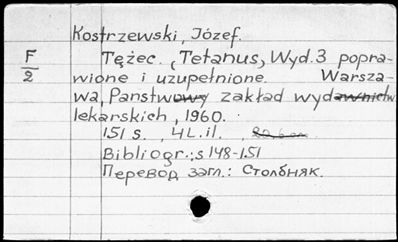 Kostrzewski, Józef.
F/2
Tężec. (Tetanus), Wyd. 3 popra-
wione i uzupełnione. Warsza-
wa, Państwowy zakład wydawnictw
lekarskich, 1960.
151 s., 4 L. il.,
Bibliogr.: s 148-151
Перевод загл.: Столбняк.